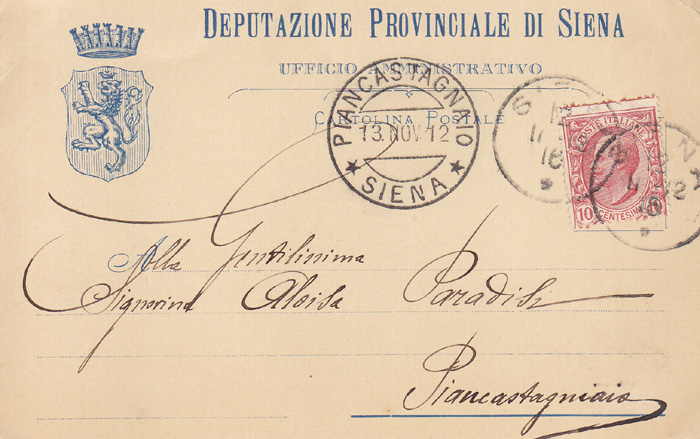 DEPUTAZIONE PROVINCIALE DI SIENA
UFFICIO AMMINISTRATIVO
CARTOLINA POSTALE
PIANCASTAGNAIO
13. NOV. 12
SIENA
POSTE ITALIANE
10
CENTESIMI
Alla Gentilissima
Signorina Aloisa Paradisi
Piancastagniaio